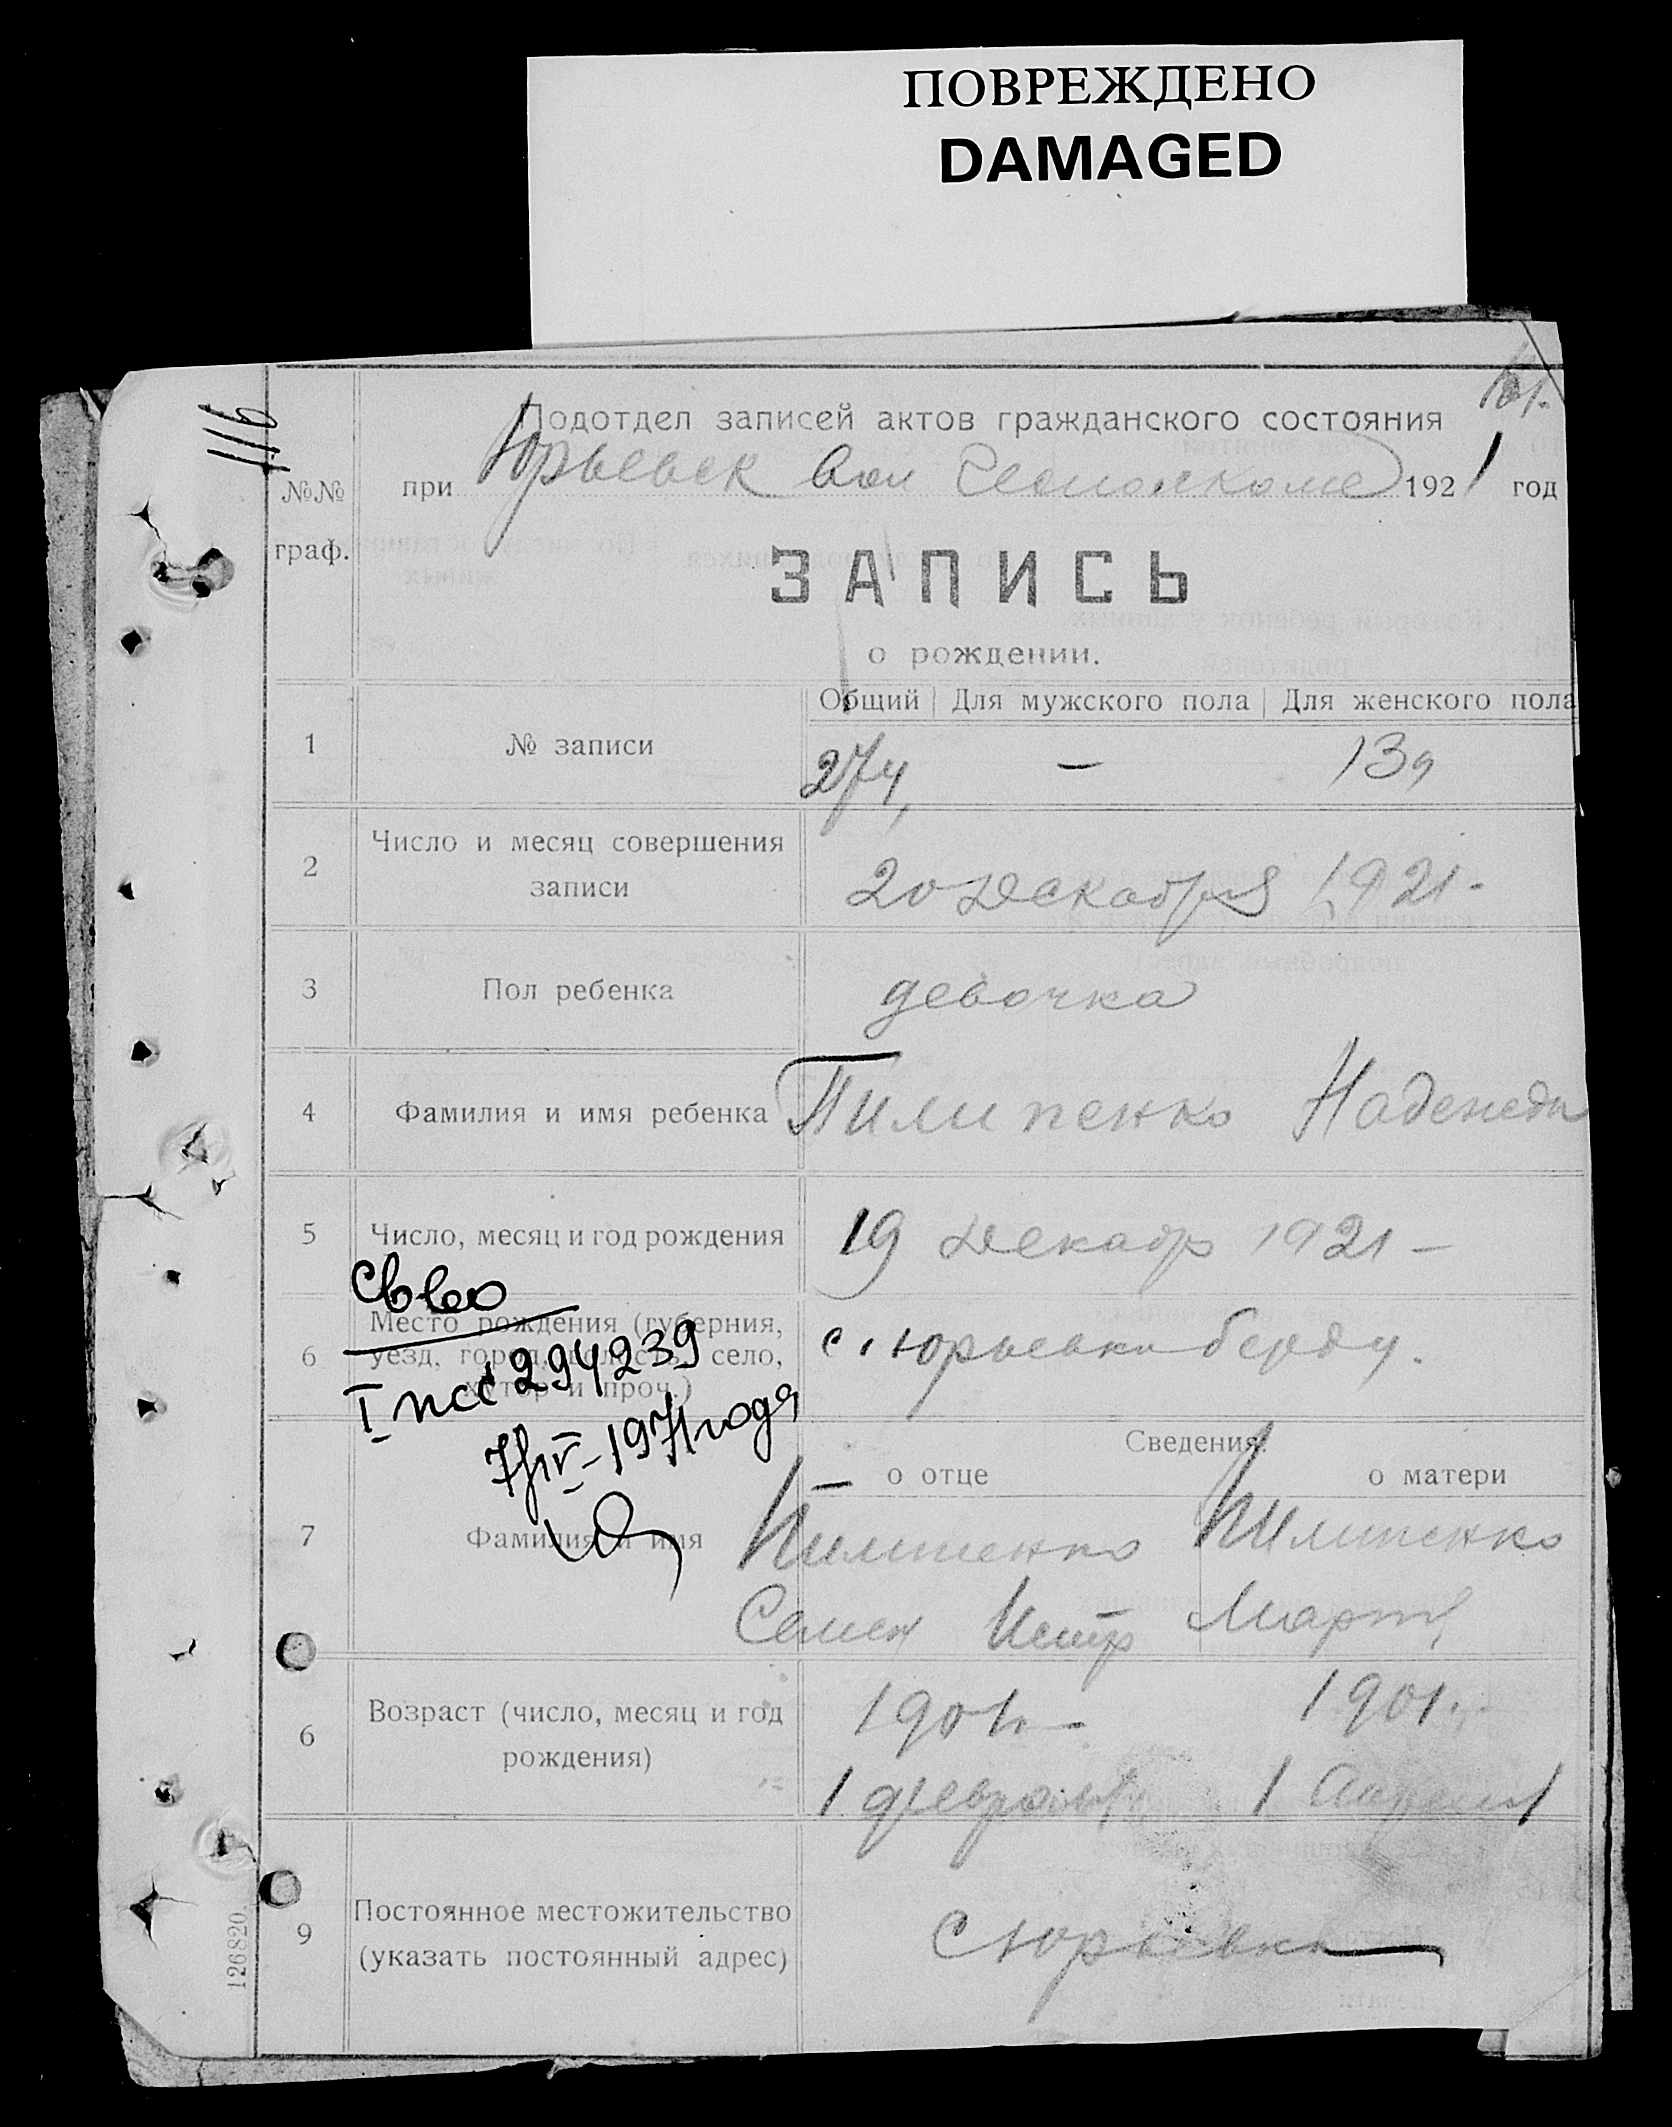 ПОВРЕЖДЕНО
DAMAGED
116
161.
Подотдел записей актов гражданского состояния
№№ граф.
при Юрьевск вол Исполкоме 1921 год
ЗАПИСЬ
о рождении.
Общий Для мужского пола Для женского пола
1 № записи 274, — 139
2 Число и месяц совершения записи 20 декабря 1921-
3 Пол ребенка девочка
4 Фамилия и имя ребенка Пилипенко Надежда
5 Число, месяц и год рождения 19 Декабр 1921 —
6 Место рождения (губерния, уезд, город, волость, село, хутор и проч.) с. Юрьевка
294239
7/IV-1971 года
Сведения:
о отце о матери
7 Фамилия и имя Пилипенко Пилипенко
Семен Петр Марта
6 Возраст (число, месяц и год рождения) 1901. - 1901.
1 февраля 1 Апреля
9 Постоянное местожительство (указать постоянный адрес) с Юрьевка
126820